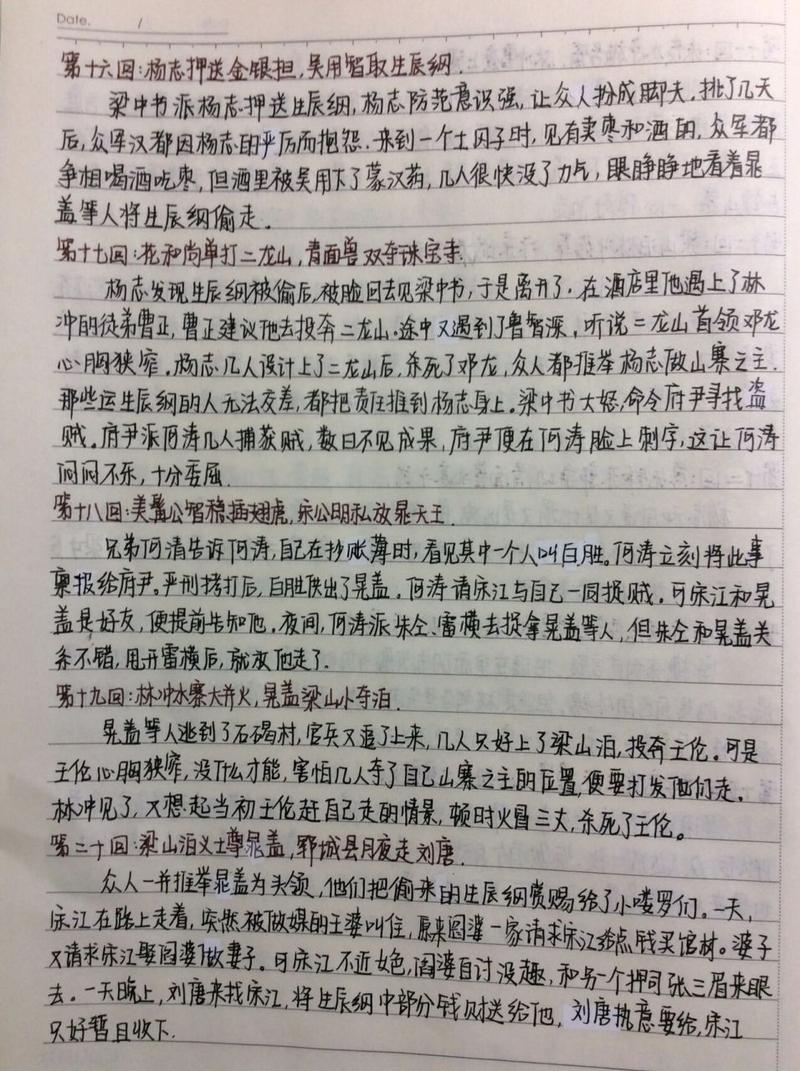 Date. /
第十六回:杨志押送金银担,吴用智取生辰纲.
梁中书派杨志押送生辰纲,杨志防范意识强,让众人扮成脚夫.挑了几天
后,众军汉都因杨志的严厉而抱怨.来到一个土冈子时,见有卖枣和酒的,众军都
争相喝酒吃枣,但酒里被吴用下了蒙汉药,几人很快没了力气,眼睁睁地看着晁
盖等人将生辰纲偷走.
第十七回:花和尚单打二龙山,青面兽双夺珠宝寺.
杨志发现生辰纲被偷后,被脸回去见梁中书,于是离开了.在酒店里他遇上了林
冲的徒弟曹正,曹正建议他去投奔二龙山.途中又遇到了鲁智深,听说二龙山首领邓龙
心胸狭窄.杨志几人设计上了二龙山后,杀死了邓龙,众人都推举杨志做山寨之主.
那些运生辰纲的人无法交差,都把责任推到杨志身上.梁中书大怒,命令府尹寻找盗
贼.府尹派何涛几人捕获贼,数日不见成果,府尹便在何涛脸上刺字,这让何涛
闷闷不乐,十分委屈.
第十八回:美髯公智稳插翅虎,宋公明私放晁天王.
兄弟何清告诉何涛,自己在抄账薄时,看见其中一个人叫白胜.何涛立刻将此事
禀报给府尹.严刑拷打后,白胜供出了晁盖.何涛请宋江与自己一同捉贼.可宋江和晁
盖是好友,便提前告知他.夜间,何涛派朱仝、雷横去捉拿晁盖等人,但朱仝和晁盖关
系不错,甩开雷横后,就放他走了.
第十九回:林冲水寨大并火,晁盖梁山小夺泊.
晁盖等人逃到了石碣村,官兵又追了上来,几人只好上了梁山泊,投奔王伦.可是
王伦心胸狭窄,没什么才能,害怕几人夺了自己山寨之主的位置,便要打发他们走.
林冲见了,又想起当初王伦赶自己走的情景,顿时火冒三丈,杀死了王伦。
第二十回:梁山泊义士尊晁盖,郓城县月夜走刘唐.
众人一并推举晁盖为头领,他们把偷来的生辰纲赏赐给了小喽罗们.一天,
宋江在路上走着,突然被做媒的王婆叫住,原来阎婆一家请求宋江给点钱买馆材.婆子
又请求宋江娶阎婆做妻子.可宋江不近女色,阎婆自讨没趣,和另一个押司张三眉来眼
去.一天晚上,刘唐来找宋江,将生辰纲中部分钱财送给他,刘唐执意要给,宋江
只好暂且收下.